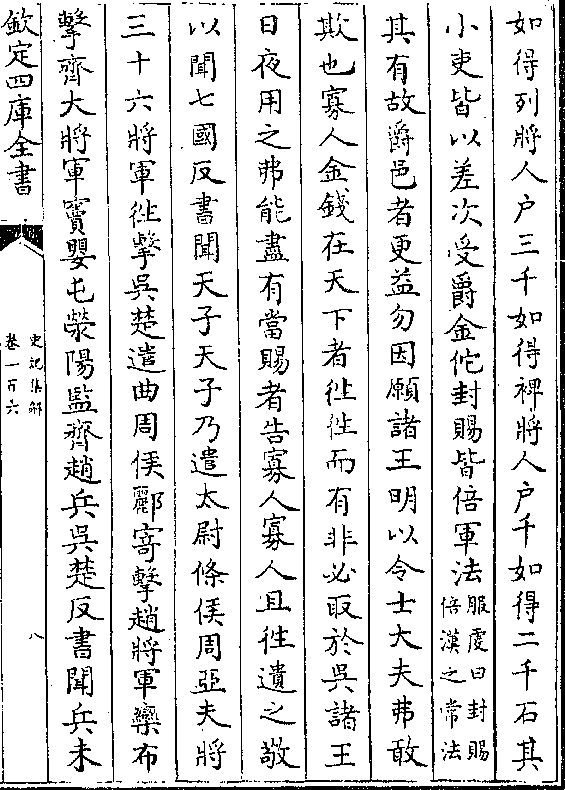 如得列將人户三千如得裨將人户千如得二千石其
小吏皆以差次受爵金佗封賜皆倍軍法服虔曰封賜倍漢之常法
其有故爵邑者更益勿因願諸王明以令士大夫弗敢
欺也寡人金錢在天下者徃徃而有非必取於吳諸王
日夜用之弗能盡有當賜者告寡人寡人且徃遺之敬
以聞七國反書聞天子天子乃遣太尉條侯周亞夫將
三十六將軍徃擊吳楚遣曲周侯酈寄擊趙將軍欒布
擊齊大將軍竇嬰屯滎陽監齊趙兵吳楚反書聞兵未
欽定四庫全書
史記集解
卷一百六
八